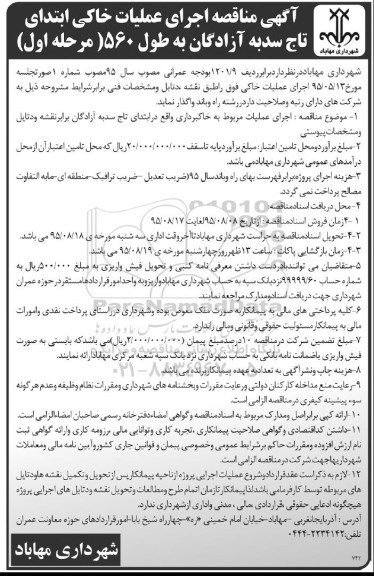 آگهی مناقصه اجرای عملیات خاکی ابتدای
تاج سدبه آزادگان به طول ۵۶۰( مرحله اول)
شهرداری مهاباد
شهرداری مهاباددرنظرداردبرابرردیف ۱۲۰۱/۹بودجه عمرانی مصوب سال ۹۵مصوب شماره ۱صورتجلسه
مورخ۹۵/۰۵/۱۳ اجرای عملیات خاکی فوق راطبق نقشه ،دتایل ومشخصات فنی برابرشرایط مشروحه ذیل به
شرکت های دارای رتبه وصلاحیت داردررشته راه وباند واگذار نماید.
۱- موضوع مناقصه : اجرای عملیات مربوط به خاکبرداری واقع درابتدای تاج سدبه آزادگان برابرنقشه ودتایل
ومشخصات‌پیوستی
۲-مبلغ برآوردومحل تامین اعتبار: مبلغ برآوردپایه تاسقف۲۰/۰۰۰/۰۰۰/۰۰۰ریال که محل تامین اعتبارآن ازمحل
درآمدهای عمومی شهرداری مهابادمی باشد.
۳-هزینه اجرای پروژه‌برابرفهرست بهای راه وباندسال ۹۵(ضریب تعدیل –ضریب ترافیک-منطقه ای-مابه التفاوت
مصالح پرداخت نمی گردد.
۴- محل دریافت اسنادمناقصه
۴-۱-زمان فروش اسنادمناقصه: ازتاریخ ۹۵/۰۸/۰۸لغایت ۹۵/۰۸/۱۷
۴-۲-تحویل اسنادمناقصه به حراست شهرداری مهابادتاآخروقت اداری سه شنبه مورخه ی ۹۵/۰۸/۱۸ می باشد.
۴-۳-زمان بازگشایی پاکات : ساعت ۱۳ظهرروزچهارشنبه مورخه ی ۹۵/۰۸/۱۹ می باشد.
۵-متقاضیان می توانندبادردست داشتن معرفی نامه کتبی و تحویل فیش واریزی به مبلغ ۵۰۰/۰۰۰ریال به
شماره حساب ۹۹۹۹۹/۶۰نزدبانک سپه به حساب شهرداری مهابادواریزوبه واحدامورقراردادهامستقردر حوزه عمران
شهرداری جهت دریافت اسنادومدارک مراجعه نمایند.
۶-کلیه پرداختی های مالی به پیمانکاربه صورت ملک معوض بوده وشهرداری درراستای پرداخت نقدی وامورات
مالی به پیمانکارمسئولیت حقوقی وقانونی ومالی راندارد.
۷-مبلغ تضمین شرکت درمناقصه ۱۰درصدمبلغ پیمان (۲/۰۰۰/۰۰۰/۰۰۰)ریال‌می باشدکه بایستی به صورت
فیش واریزی یاضمانت نامه بانکی به حساب شهرداری نزد بانک سپه شعبه مرکزی مهابادارائه نمایند.
۸-هزینه چاپ ونشرآگهی به تعدادبه عهده پیمانکاربرنده می باشد.
۹-رعایت منع مداخله کارکنان دولتی ورعایت مقررات وبخشنامه های شهرداری ومقررات نظام وظیفه وعدم هرگونه
سوء پیشینه کیفری درمناقصه الزامی است.
۱۰-ارائه کپی برابراصل ومدارک مربوط به اسنادمناقصه وگواهی امضاءدفترخانه رسمی صاحبان امضاءالزامی است.
۱۱-داشتن کداقتصادی و گواهی صلاحیت پیمانکاری ،تجربه کاری وتوانایی مالی ،رزومه کاری وارائه گواهی ثبت
نام ارزش افزوده ومقررات حاکم برشرایط عمومی وخصوصی پیمان و قوانین جاری کشوروآیین نامه مالی ومعاملات
شهرداریهاجهت شرکت درمناقصه الزامی است.
۱۲-لازم به ذکراست عقدقراردادوشروع عملیات اجرایی پروژه ازناحیه پیمانکارپس ازتحویل وتکمیل نقشه هاودتایل
های مربوطه توسط کارفرمامی باشدلذاپیمانکارتازمان اتمام طرح ومطالعات وتحویل نقشه ودتایل های اجرایی پروژه
هیچگونه ادعایی حقوقی قراردادی ،مالی ، مدنی واداری ازشهرداری ندارد.
آدرس : آذربایجانغربی –مهاباد-خیابان امام خمینی «ره»-چهارراه شیخ بابا-امورقراردادهای حوزه معاونت عمران
تلفن:۲۲۳۴۱۴۲-۰۴۴۴
شهرداری مهاباد